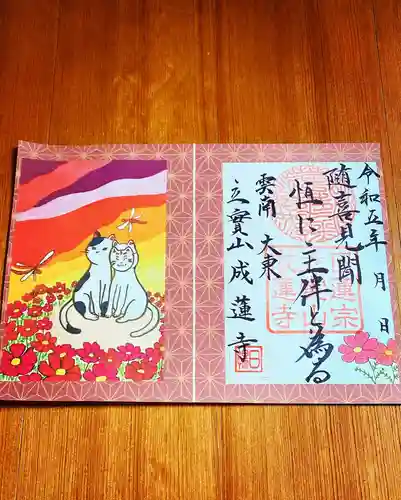 令和五年 月 日
随喜見聞
恒に主伴と為る
雲南 大東
立寳山 成蓮寺